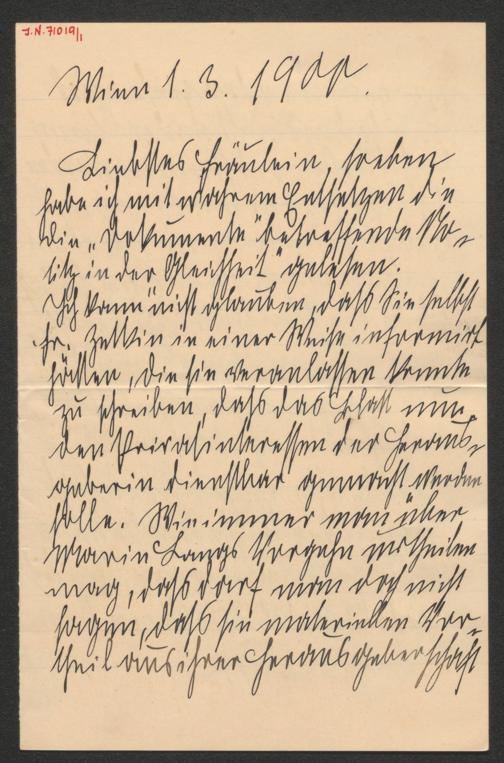 J.N. 71019/1
Wien 1. 3. 1900.
Liebstes Fräulein, soeben
habe ich mit wahrem Entsetzen die
die „Dokumente" betreffende No-
titz in der „Gleichheit" gelesen.
Ich kann nicht glauben, dass Sie selbst
Fr. Zetkin in einer Weise informirt
hätten, die sie veranlassen konnte
zu schreiben, dass das Blatt nun
den Privatinteressen der Heraus-
geberin dienstbar gemacht werden
solle. Wie immer man über
Marie Langs Vorgehn urtheilen
mag, dass darf man doch nicht
sagen, dass sie materiellen Vor-
theil aus ihrer Herausgeberschaft